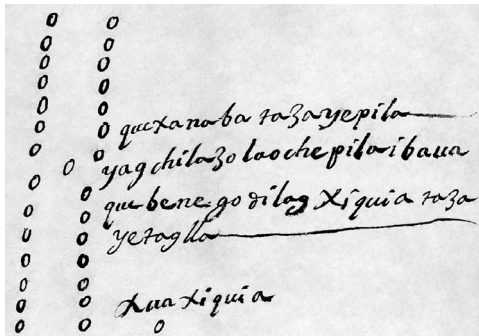 quexana ba tazayepila
yagchilazo laoche pila ibaua
que bene go dilag xiquia taza
yetaglla
xua xiquia